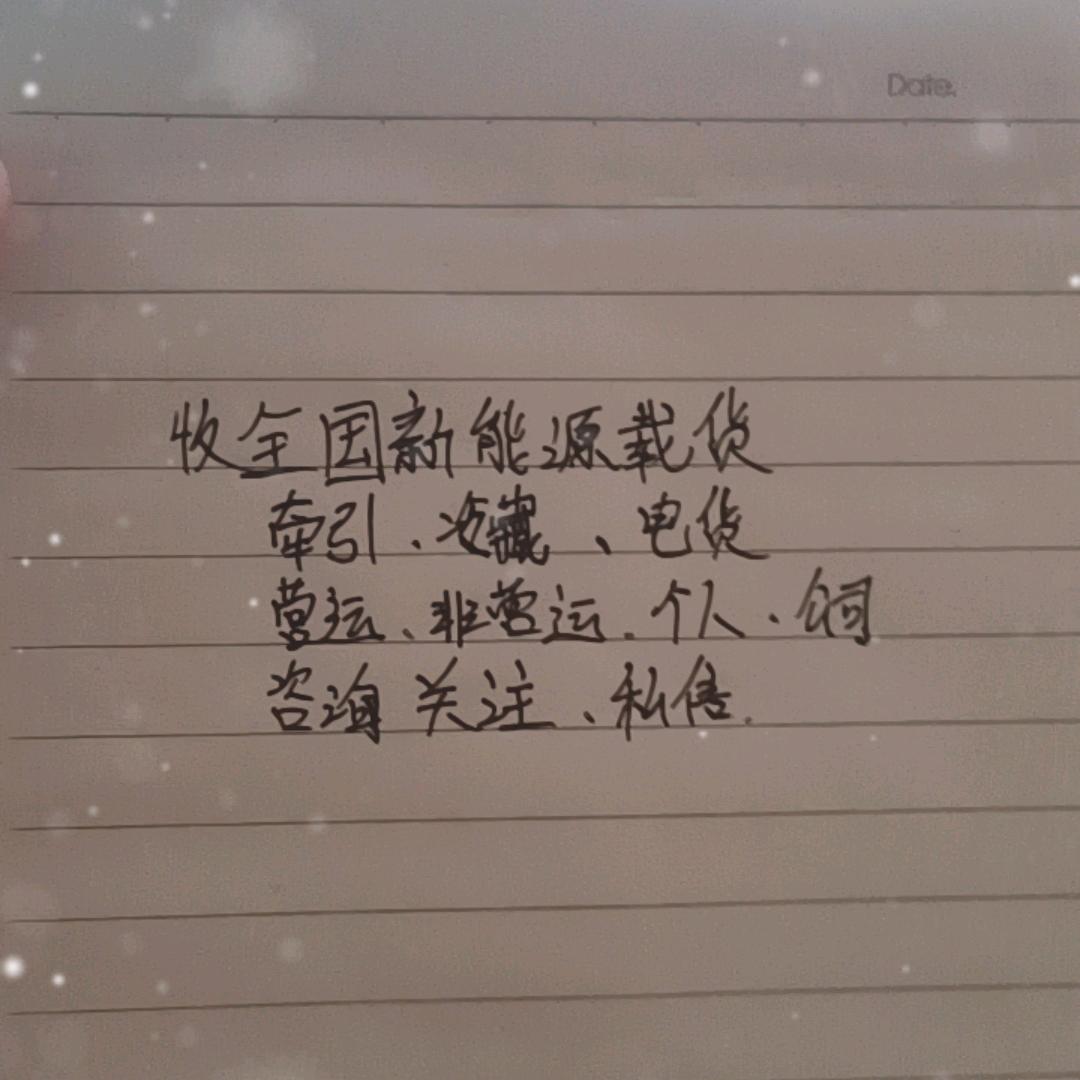 Date.
收全国新能源载货
牵引、冷藏、电货
营运、非营运、个人、公司
咨询 关注、私信.